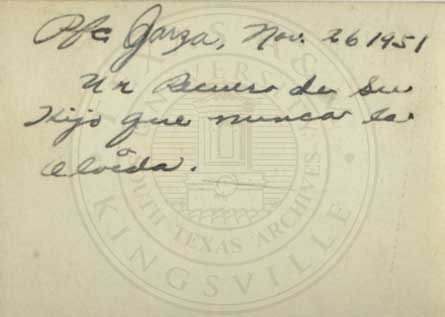 Pfc Garza, Nov. 26 1951
Un Recuero de Su
Hijo que nunca la
olvida.
SOUTH TEXAS ARCHIVES
KINGSVILLE